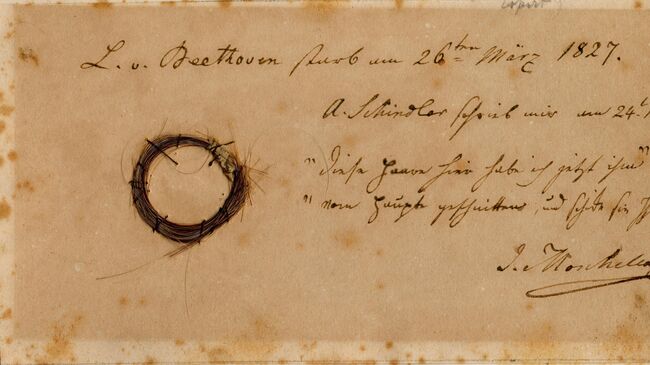 L. v. Beethoven starb am 26ten März 1827.
A. Schindler schrieb mir am 24t
"diese Haare hier habe ich jetzt ihm"
"vom Haupte geschnitten, und schike sie